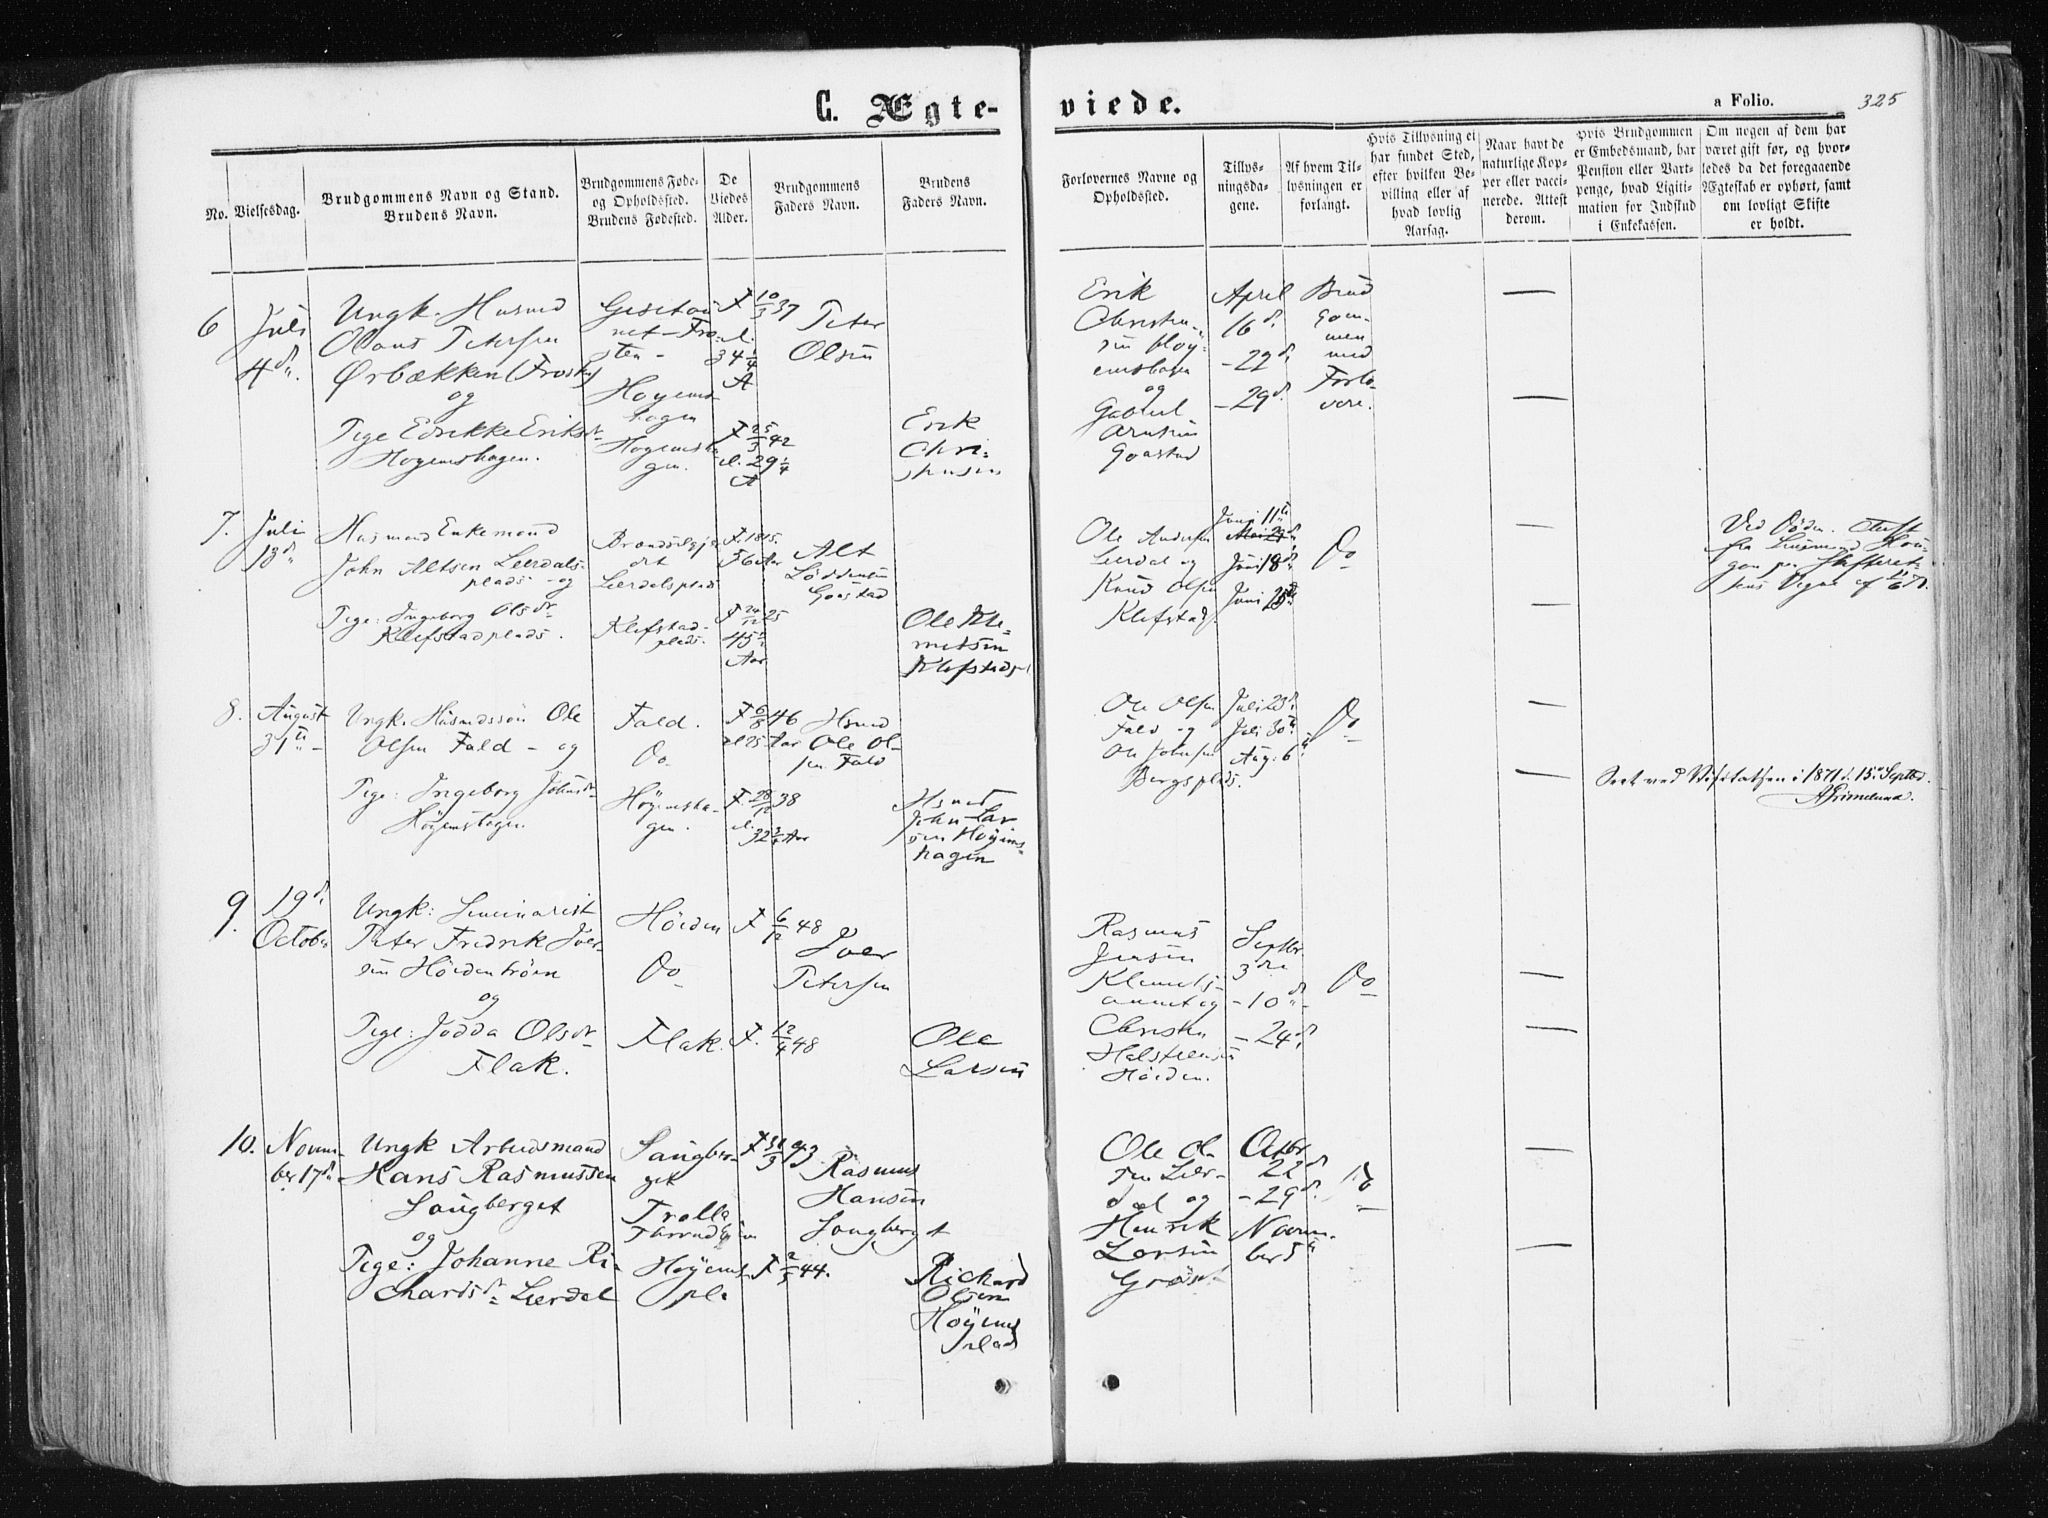 C. Ægte-
viede.
a Folio.
325
No.
Vielsesdag.
Brudgommens Navn og Stand.
Brudens Navn.
Brudgommens Føde-
og Opholdssted.
Brudens Fødested.
De
Viedes
Alder.
Brudgommens
Faders Navn.
Brudens
Faders Navn.
Forlovernes Navne og
Opholdssted.
Tillys-
ningsda-
gene.
Af hvem Til-
lysningen er
forlangt.
Hvis Tillysning ei
har fundet Sted,
efter hvilken Be-
villing eller af
hvad lovlig
Aarsag.
Naar havt de
naturlige Kop-
per eller vacci-
nerede. Attest
derom.
Hvis Brudgommen
er Embedsmand, har
Pension eller Vart-
penge, hvad Ligiti-
mation for Indskud
i Enkekassen.
Om nogen af dem har
været gift før, og hvor-
ledes da det foregaaende
Ægteskab er ophørt, samt
om lovligt Skifte
er holdt.
6
Juli
4d.
Ungk. Husmd
Olaus Petersen
Ørbækken (Frosten)
og
Pige Edrikke Eriksdr
Hoyemshagen.
sten -
Hoyems-
hagen
Hoyemsha-
gen.
F 10/3 37
34 1/4
A
F 25/3 42
29 1/4
A
Peter
Olsen
Erik
Chri-
stensen
Erik
Christen-
sen Hoy-
emshagen
og
Gabriel
Arntsen
Goastad
April
16d.
-22d.
-29d.
Brud
gom-
men
med
Forlo-
vere.
7.
Juli
13d.
Husmand Enkemand
John Altsen Leerdals-
plads - og
Pige: Ingeborg Olsdr
Klefstadplads.
Leerdalsplads
Klefstad-
plads.
F. 1815.
56 Aar
F 24/12 25
45
Aar
Alt
Goastad
Ole Kle-
metsen
Klefstadp
Ole Andersen
Leerdal og
Knud Olsen
Klefstad
Juni 11te
Juni 18d.
Juni 25
Do
Ved Døden. Attest
fra
8.
August
31te
Ungk. Husmdssøn Ole
Olsen Fald - og
Pige: Ingeborg Johnsdr
Höyemshagen
Fald.
Do.
Höyemsha-
gen.
F 6/8 46
25 Aar
F. 28/12 38
32 3/4 Aar
Hsmd
Ole Ol-
sen Fald
Hsmd
John Lar
sen Höyems-
hagen
Ole Olsen
Fald og
Ole Johnsen
Bergsplads.
Juli 23d.
Juli 30te
Aug. 6te
Do
Seet ved Visitatsen i 1871 d. 15de Septbr.
AGrimelund.
9.
19d.
October
Ungk: Seminarist
Peter Fredrik Iver-
sen Höidentröen
og
Pige: Jodda Olsdr
Flak.
Höiden
Do
Flak.
F 6/12 48
F. 12/4 48
Iver
Petersen
Ole
Larsen
Rasmus
Jensen
Klemets-
aunet og
Christen
Halstensen
Höiden.
Septbr
3die
-10d.
-24d.
Do
10.
Novem-
ber 17d.
Ungk Arbeidsmand
Hans Rasmussen
Saugberget
og
Pige: Johanne Ri-
chardsdr Leerdal
Saugber-
get
Trolla
Höyems-
pla
F 31/3 43
F 2/5 44.
Rasmus
Hansen
Saugberget
Richard
Olsen
Höyems
plads
Ole Ol-
sen Leer-
dal og
Henrik
Larsen
Octbr
22d
-29d.
Novem-
ber 5te
Do